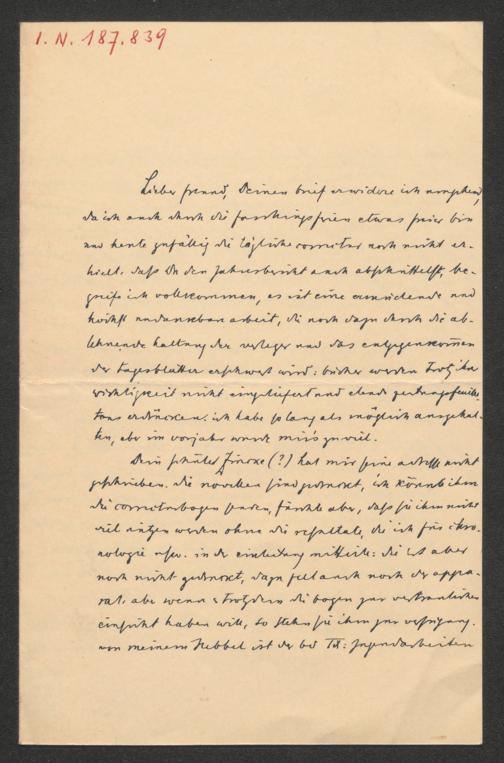 I. N. 187.839
Lieber freund, Deinen brief erwidere ich umgehend,
da ich auch durch die faschingsferien etwas freier bin
und heute zufällig die tägliche correctur noch nicht er-
hielt. dass Du den Jahresbericht auch abschüttelst, be-
greife ich vollkommen, es ist eine ermüdende und
höchst undankbare arbeit, die noch dazu durch die ab-
lehnende haltung der verleger und das entgegenkommen
der tagesblätter erschwert wird: bücher werden trotz ihrer
wichtigkeit nicht eingeliefert und elende zeitungsfeuille-
tons erdrücken. ich habe so lang als möglich ausgehal-
ten, aber im vorjahr wurde mir's zu viel.
Dein schüler Zincke (?) hat mir seine adresse nicht
geschrieben. die novellen sind gedruckt, ich könnte ihm
die correcturbogen senden, fürchte aber, dass sie ihm nicht
viel nützen werden ohne die resultate, die ich für chro-
nologie usw. in der einleitung mitteile: die ist aber
noch nicht gedruckt, dazu fehlt auch noch der appa-
rat. aber wenn er trotzdem die bogen zur vertraulichen
einsicht haben will, so stehn sie ihm zur verfügung.
von meinem Hebbel ist der bd : Jugendarbeiten